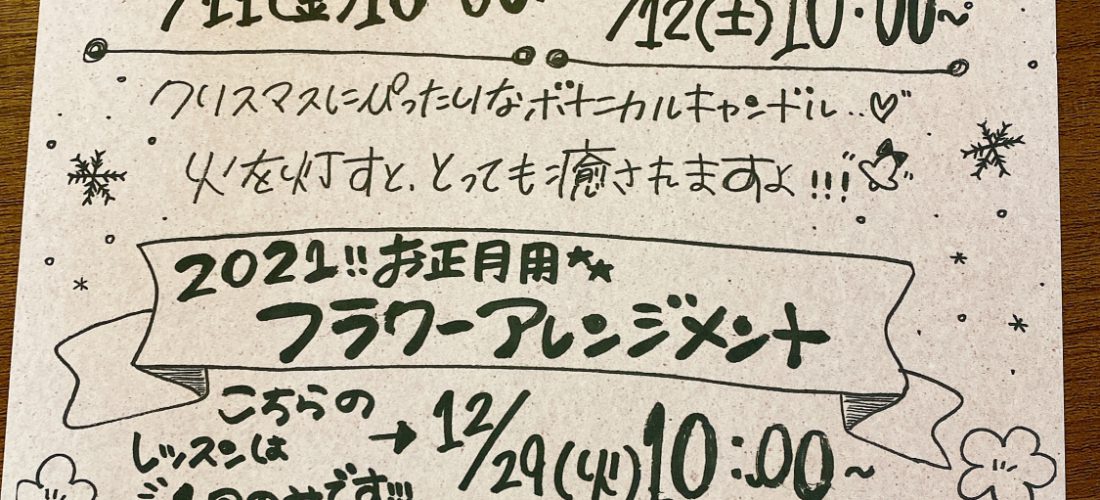 /11(金)10:00~
/12(土)10:00~
クリスマスにぴったりなボタニカルキャンドル..♡
火を灯すと、とっても癒されますよ!!!
2021!!お正月用★★
フラワーアレンジメント
こちらの
レッスンは
→12/29(火)10:00~
です!!!